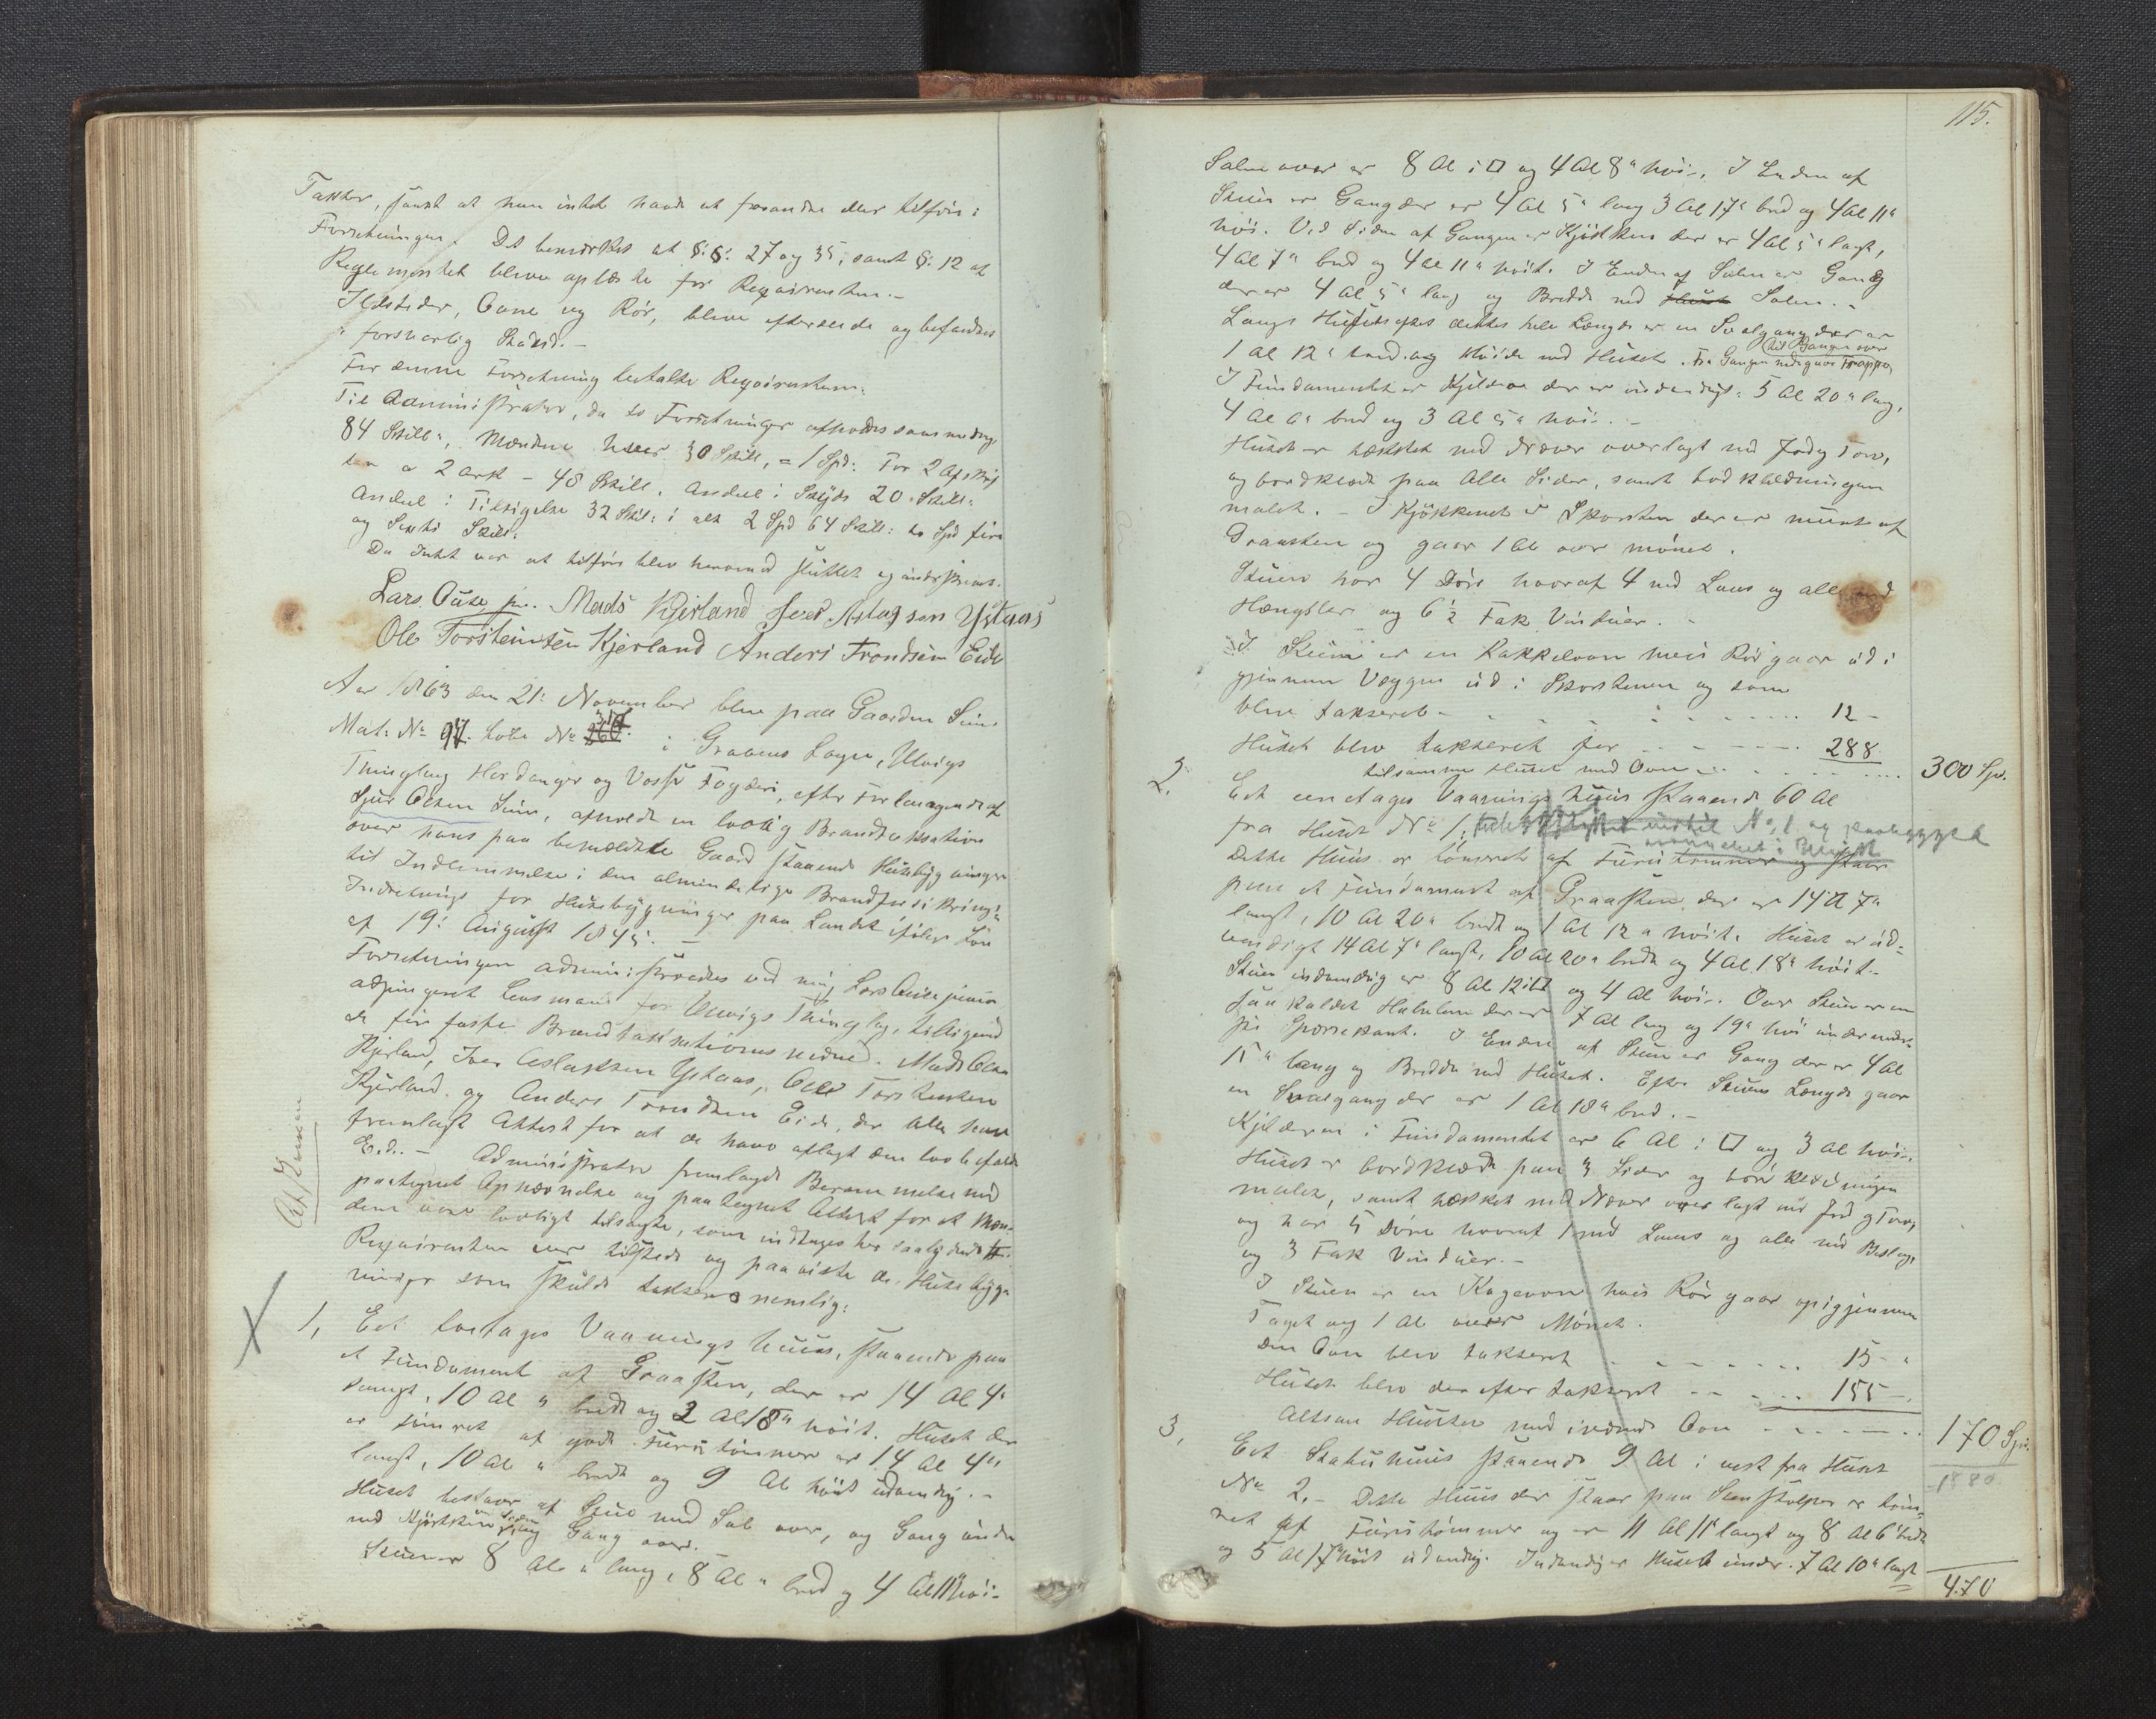 Takster, samt at han intet havde at forandre eller tilføie i
Forretningen. Det bemærkes at §.§. 27 og 35, samt §. 12 af
Reglementet bleve oplæste for Reqvirenten.-
Ildsteder, Ovne og Rør, bleve efterseede og befandtes
i forsvarlig Stand.-
For denne Forretning betalte Reqvirenten:
Til Administrator, da to Forretninger afholdes samme dag
84 Skill:, Mændene hver 30 Skill, = 1 Spd: For 2 Afskrif
ter a 2 Ark - 48 Skill. Andeel i Skyds 20 Skill:
Andeel i Tilsigelse 32 Skil: i alt 2 Spd 64 Skill: to Spd fire
og Sexti Skill:
Da Intet var at tilføie blev herved sluttet og underskrevet.
Lars Ouse jun. Mads Kjerland Iver Aslagsen Ystaas
Ole Torsteinsen Kjerland Anders Trondsen Eide
Aar 1863 den 21: November blev paa Gaarden
Mat: No 97. Løbe No 317 i Gravens Sogn, Ulvigs
Thinglag Hardanger og Voss Fogderi, efter Forlangende af
Sjur Olsen, afholdt en lovlig Brandtaxation
over hans paa bemældte Gaard staaende Huusbygninger
til Indlemmelse i den almindelige Brandforsikrings
Indretnings for Huusbygninger paa Landet ifølge Lov
af 19: August 1845. -
Forretningen administreredes ved mig Lars Ouse junior
adjungeret Lensmand for Ulvigs Thinglag, tilligemed
de fire faste Brandtaxationsmænd: Mads Olsen
Kjerland, Iver Aslaksen Ystaas, Ole Torstensen
Kjerland og Anders Trondsen Eide, der alle have
fremlagt Attest for at de have aflagt den lovbefalede
Ed. - Administrator fremlagde Berammelse med
paategnet Opnævnelse og paategnet Attest for at Mæn-
dene vare lovligt tilsagte, som indtages her saalydende #.
Reqvirenten var tilstede og paaviste de Huusbyg-
ninger som skulde taxeres nemlig:
1, Eet toetages Vaaningshuus, staaende paa
et Fundament af Graasten, der er 14 Al 4"
langt, 10 Al " bredt og 2 Al 18" høit. Huset der
er tømret af godt Furutømmer er 14 Al 4"
langt, 10 Al " bredt og 9 Al høit udvendig.-
Huset bestaar af Stue med Sal over, og Gang under
med Kjøkken og Gang over.-
Stuen er 8 Al " lang, 8 Al " bred og 4 Al 11" høi.-
115.
Salen over er 8 Al i □ og 4 Al 8" høi-. I Enden af
Stuen er Gang der er 4 Al 5" lang 3 Al 17" bred og 4 Al 11"
høi. Ved Siden af Gangen er Kjøkken der er 4 Al 5" langt,
4 Al 7" bred og 4 Al 11" høit. I Enden af Salen er Gang
der er 4 Al 5" lang og Bredde med Salen.-
Langs Husets dettes hele Længde er en Svalgang der er
1 Al 12" bred og Høide med Huset. Fra Gangen nedgaar Trappe
til Gangen over
I Fundamentet er Kjelder der er indvendigt: 5 Al 20" lang,
4 Al 6" bred og 3 Al 5" høi. -
Huset er tækket med Næver overlagt med Jord og Torv,
og bordklædt paa alle Sider, samt bordklædningen
malet. - I Kjøkkenet er Skorsten der er muret af
Graasten og gaar 1 Al over mønet.
Stuen har 4 Døre hvoraf 4 med Laas og alle med
Hængsler og 6½ Fak Vinduer.-
I Stuen er en Kakkelovn hvis Rør gaar ud i
gjennem Væggen ud i Skorstenen og som
blev takseret - - - - - 12 -
Huset blev takseret for - - - - 288
tilsammen Huset med Ovn - - - - 300 Spd.
2. Eet eenetages Vaaningshuus staaende 60 Al
fra Huset No 1, No. 1 og paabygget
Dette Huus er tømret af Furutømmer og staar
paa et Fundament af Graasten der er 14 Al 7"
langt, 10 Al 20" bredt og 1 Al 12" høit. Huset er ud-
vendigt 14 Al 7" langt, 10 Al 20" bredt og 4 Al 18" høit.-
Stuen indvendig er 8 Al 12 i □ og 4 Al høi-. Over Stuen er en
saa kaldet der er 7 Al lang og 19" høi under
I Enden af Stuen er Gang der er 4 Al
15" lang og Bredde med Huset. Efter Stuens Længde gaar
en Svalgang der er 1 Al 18" bred.-
Kjelderen i Fundamentet er 6 Al i □ og 3 Al høi-.
Huset er bordklædt paa 3 Sider og bordklædningen
malet, samt tækket med Næver overlagt med Jord og Torv,
og har 5 Døre hvoraf 1 med Laas og alle med Beslag,
og 3 Fak Vinduer.-
I Stuen er en Kogeovn hvis Rør gaar op igjennem
Taget og 1 Al over Mønet.
Den Ovn blev takseret - - - - 15 - "
Huset blev der efter takseret - - - - 155 -
Altsaa Huset med Ovn - - - - 170 Spd.
1880
3, Eet Stabuhuus staaende 9 Al i vest fra Huset
No 2.- Dette Huus der staar paa Stenstolper er tøm-
ret af Furutømmer og er 11 Al 11" langt og 8 Al 6" bredt
og 5 Al 17" høit udvendig. Indvendig er Huset under 7 Al 10" langt
470